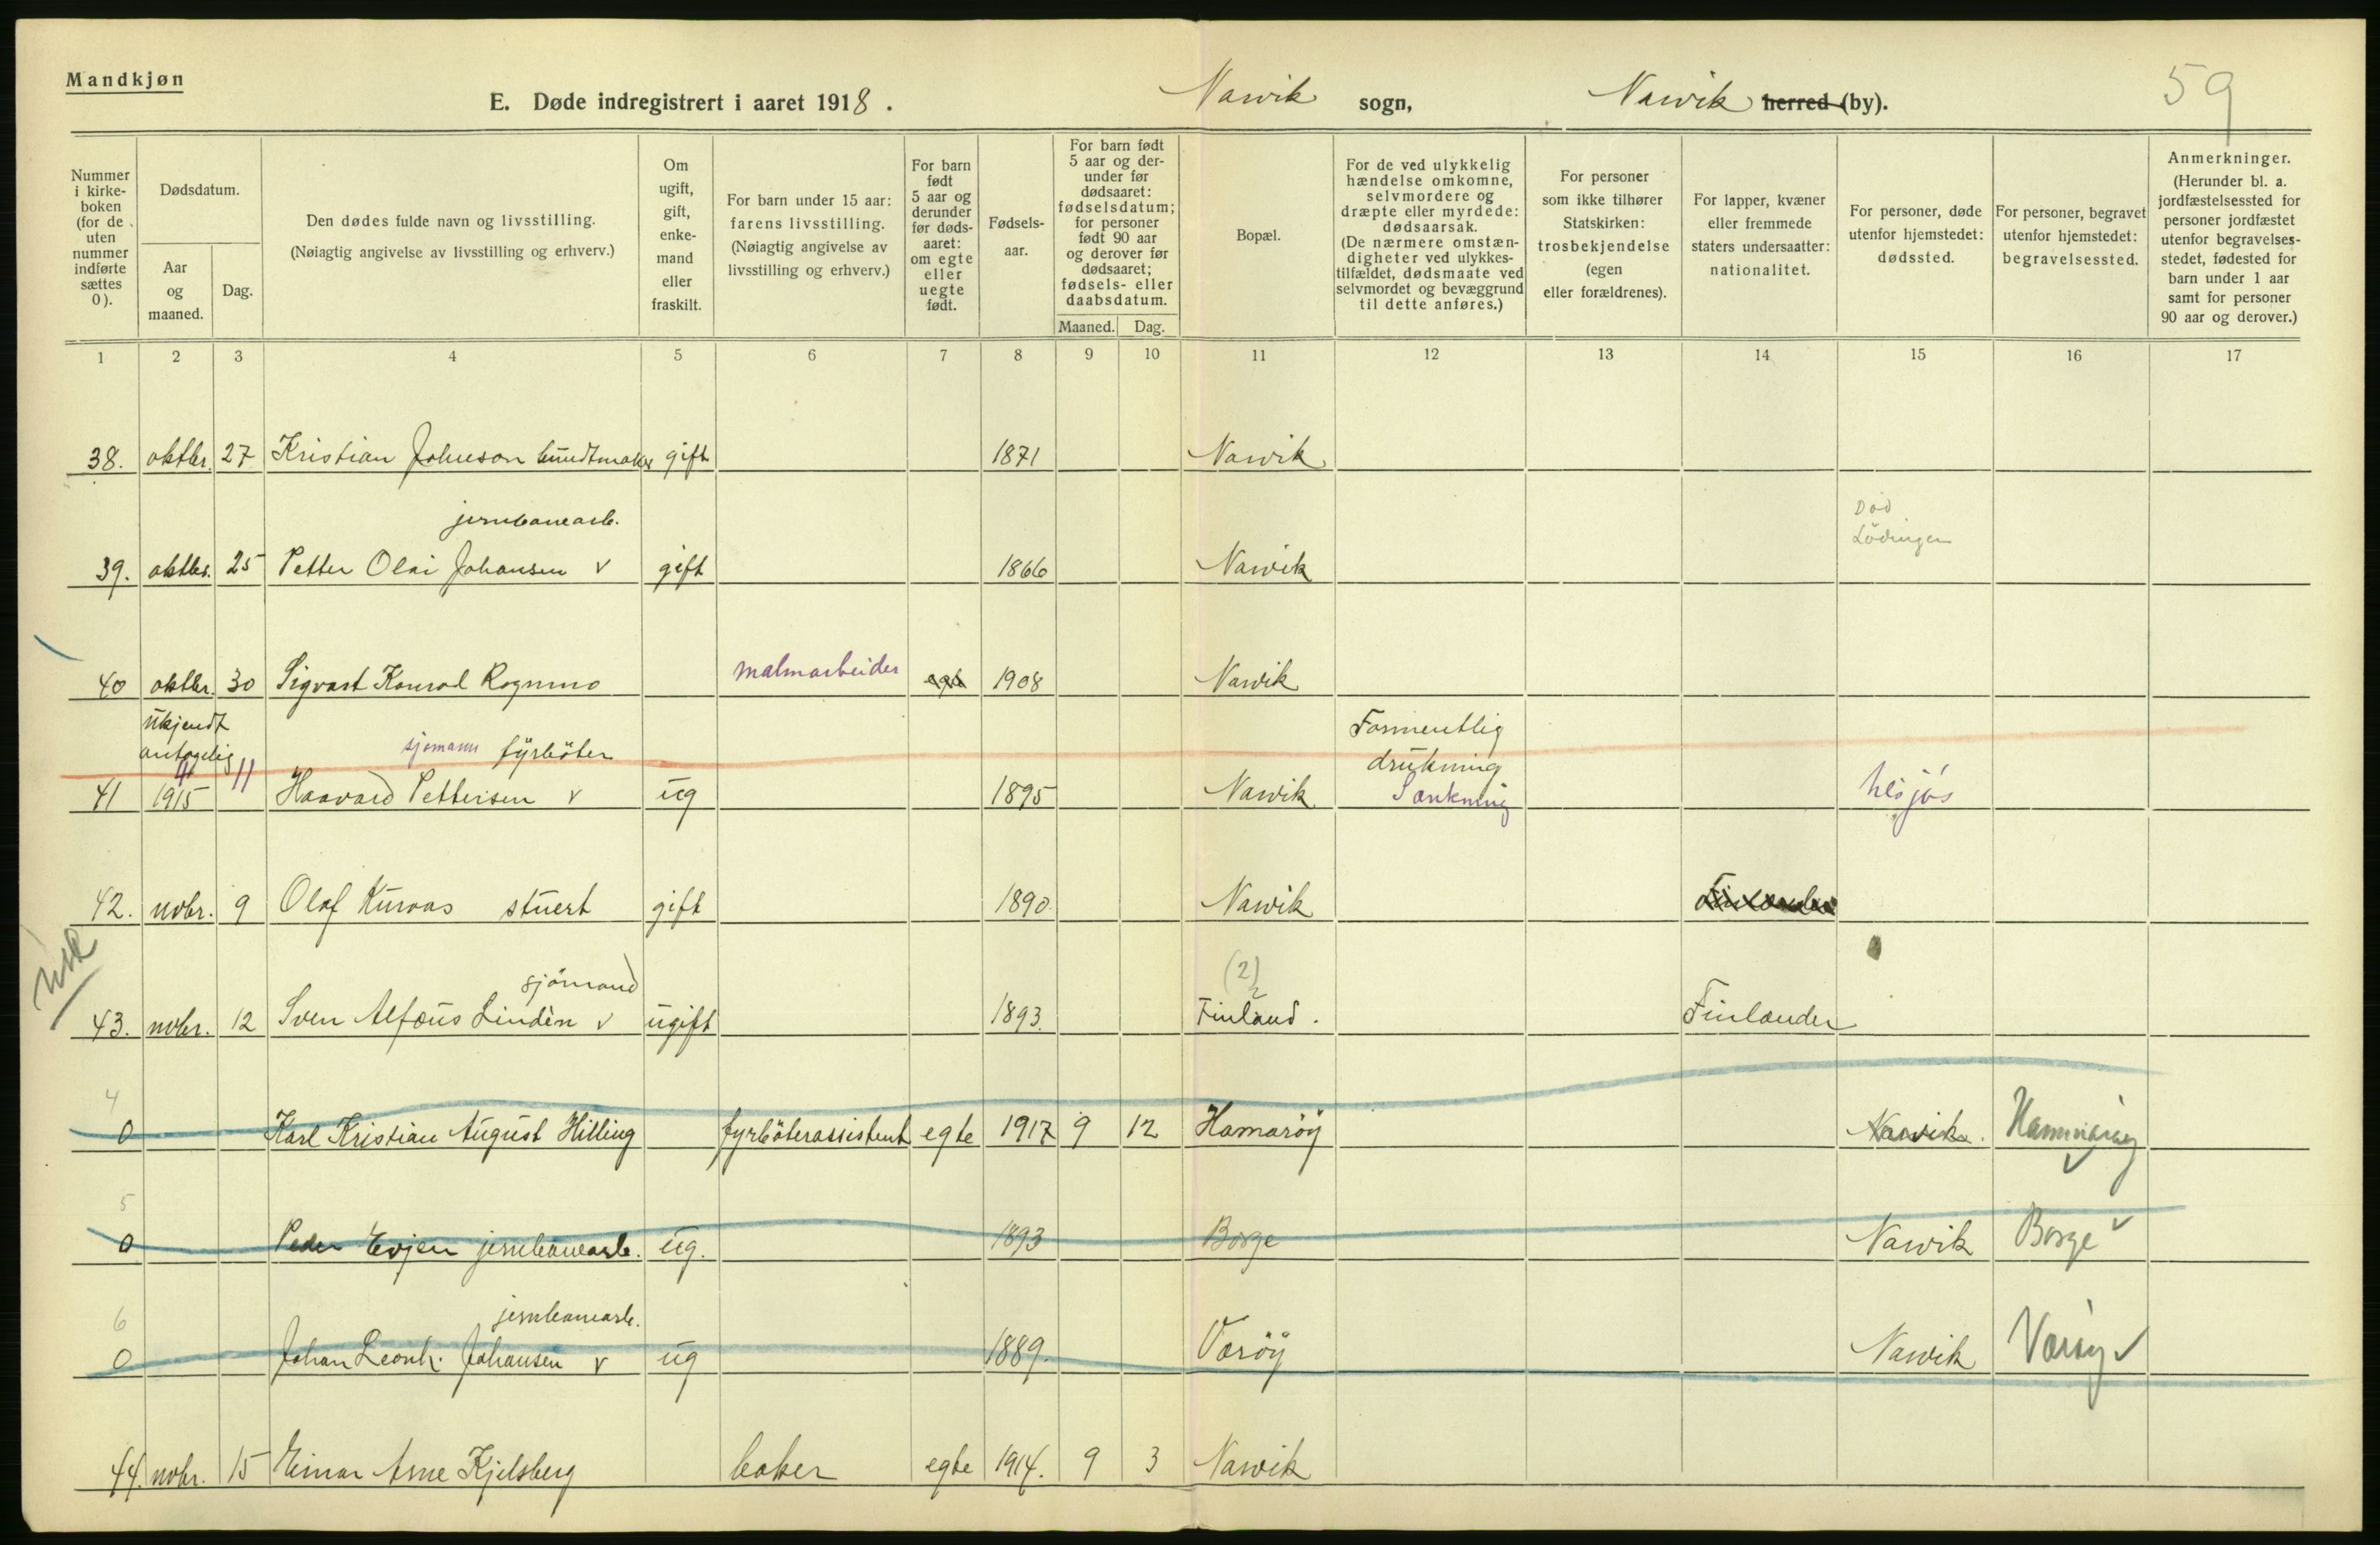 Mandkjøn
E. Døde indregistrert i aaret 1918. Narvik sogn, Narvik herred (by). 59
Nummer i kirke- boken (for de uten nummer indførte sættes 0).
Dødsdatum.
Aar og maaned.
Dag.
Den dødes fulde navn og livsstilling.
(Nøiagtig angivelse av livsstilling og erhverv.)
Om ugift, gift, enke- mand eller fraskilt.
For barn under 15 aar: farens livsstilling.
(Nøiagtig angivelse av livsstilling og erhverv.)
For barn født 5 aar og derunder før døds- aaret: om egte eller uegte født.
Fødsels- aar.
For barn født 5 aar og der- under før dødsaaret: fødselsdatum; for personer født 90 aar og derover før dødsaaret; fødsels- eller daabsdatum.
Maaned. Dag.
Bopæl.
For de ved ulykkelig hændelse omkomne, selvmordere og dræpte eller myrdede: dødsaarsak.
(De nærmere omstæn- digheter ved ulykkes- tilfældet, dødsmaate ved selvmordet og bevæggrund til dette anføres.)
For personer som ikke tilhører Statskirken: trosbekjendelse (egen eller forældrenes).
For lapper, kvæner eller fremmede staters undersaatter: nationalitet.
For personer, døde utenfor hjemstedet: dødssted.
For personer, begravet utenfor hjemstedet: begravelsessted.
Anmerkninger.
(Herunder bl. a. jordfæstelsessted for personer jordfæstet utenfor begravelses- stedet, fødested for barn under 1 aar samt for personer 90 aar og derover.)
1 2 3 4 5 6 7 8 9 10 11 12 13 14 15 16 17
38. oktbr. 27 Kristian Johnson bundtmaker gift 1871 Narvik
jernbanearb. Død Lödingen
39. oktbr. 25 Petter Olai Johansen v gift 1866 Narvik
40 oktbr. 30 Sigvart Konrad Rognmo malmarbeider egte 1908 Narvik
ukjendt antagelig sjømann fyrböter Formentlig drukning
41 1915 11 Haavard Pettersen v ug 1895 Narvik Sænkning
42. nobr. 9 Olaf Kuraas stuert gift 1890. Narvik Finlænder
sjömand (2)
43. nobr. 12 Sven Alfons Lindèn v ugift 1893. Finland. Finlænder
4
0 Karl Kristian August Hilling fyrböterassistent egte 1917 9 12 Hamaröy Narvik. Hammaröy
5
0 Peder Evjen jernbanearb. ug. 1893 Borge Narvik Borge v
6 jernbanearb.
0 Johan Leonh. Johansen v ug 1889. Væröy Narvik Væröy v
44. nobr. 15 Einar Arne Kjelsberg baker egte 1914. 9 3 Narvik